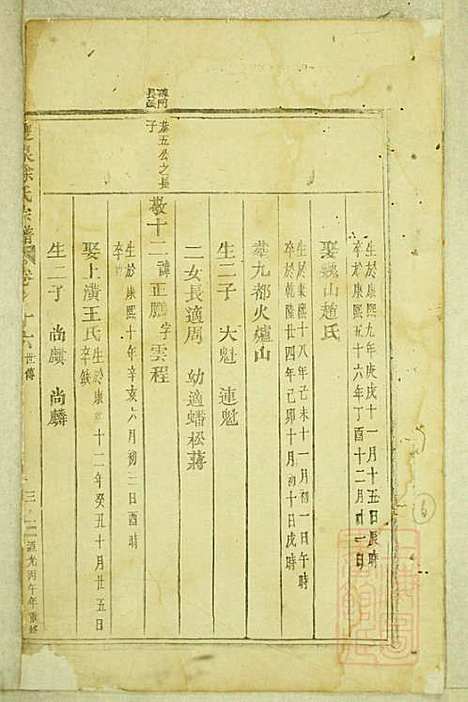 生於康熙九年庚戌十一月十五日辰時
卒於康熙五十六年丁酉十二月廿一日
娶巍山趙氏
生於康熙十八年己未十一月初一日午時
卒於乾隆廿四年己卯十月初十日戌時
葬九都火爐山
生二子 大魁 連魁
二女長適周 幼適蟠松蔣
恭五公之長子
敬十二諱正鵬字雲程
生於康熙十年辛亥六月初二日酉時
卒
娶上潢王氏
生於康 十二年癸丑十月廿五日
卒缺
生二子 尚麒 尚麟
徐氏宗譜
十六世傳
道光丙午年重修
6